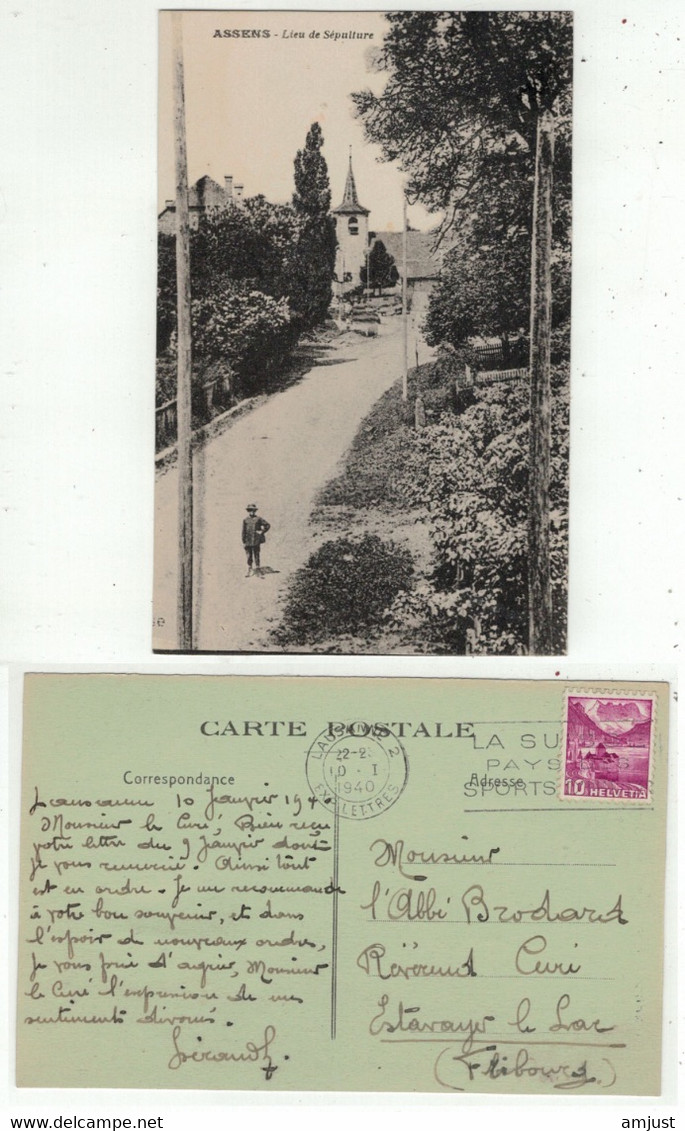 ASSENS - Lieu de Sépulture
CARTE POSTALE
Correspondance
Adresse
LAUSANNE 2
22-2
10·I
1940
EXP. LETTRES
LA SU
PAYS DES
SPORTS
10 HELVETIA
Lausanne 10 Janvier 1940
Monsieur le Curé, Bien reçu
votre lettre du 9 Janvier dont
je vous remercie. Ainsi tout
est en ordre. Je me recommande
à votre bon souvenir, et dans
l'espoir de nouveaux ordres,
je vous prie d'agréer, Monsieur
le Curé l'expression de mes
sentiments dévoués.
Monsieur
l'Abbé Brodard
Révérend Curé
Estavayer le Lac
(Fribourg)
amjust